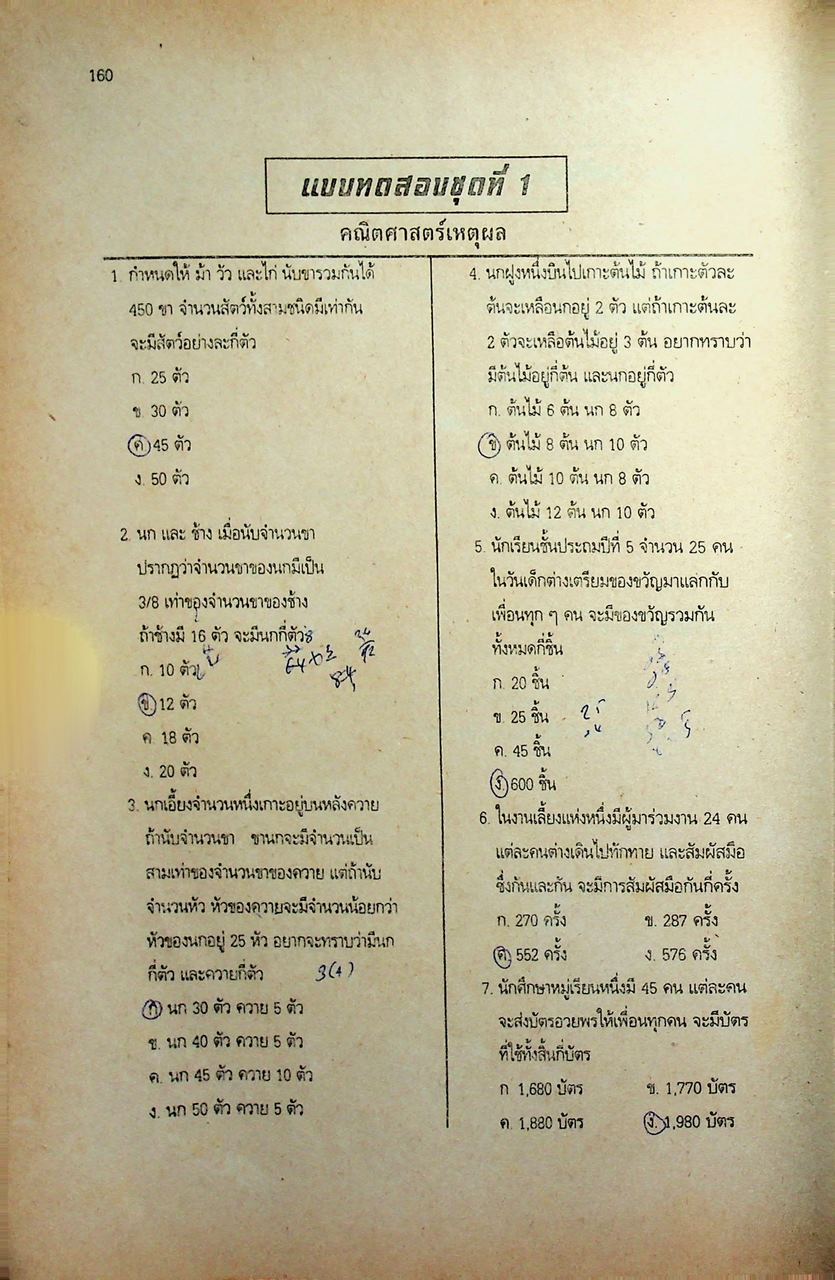 160
แบบทดสอบชุดที่ 1
คณิตศาสตร์เหตุผล
1. กำหนดให้ ม้า วัว และไก่ นับขารวมกันได้
450 ขา จำนวนสัตว์ทั้งสามชนิดมีเท่ากัน
จะมีสัตว์อย่างละกี่ตัว
ก. 25 ตัว
ข. 30 ตัว
ค. 45 ตัว
ง. 50 ตัว
2. นก และ ช้าง เมื่อนับจำนวนขา
ปรากฏว่าจำนวนขาของนกมีเป็น
3/8 เท่าของจำนวนขาของช้าง
ถ้าช้างมี 16 ตัว จะมีนกกี่ตัว
ก. 10 ตัว
ข. 12 ตัว
ค. 18 ตัว
ง. 20 ตัว
3. นกเอี้ยงจำนวนหนึ่งเกาะอยู่บนหลังควาย
ถ้านับจำนวนขา ขานกจะมีจำนวนเป็น
สามเท่าของจำนวนขาของควาย แต่ถ้านับ
จำนวนหัว หัวของควายจะมีจำนวนน้อยกว่า
หัวของนกอยู่ 25 หัว อยากจะทราบว่ามีนก
กี่ตัว และควายกี่ตัว 3(4)
ก. นก 30 ตัว ควาย 5 ตัว
ข. นก 40 ตัว ควาย 5 ตัว
ค. นก 45 ตัว ควาย 10 ตัว
ง. นก 50 ตัว ควาย 5 ตัว
4. นกฝูงหนึ่งบินไปเกาะต้นไม้ ถ้าเกาะตัวละ
ต้นจะเหลือนกอยู่ 2 ตัว แต่ถ้าเกาะต้นละ
2 ตัวจะเหลือต้นไม้อยู่ 3 ต้น อยากทราบว่า
มีต้นไม้อยู่กี่ต้น และนกอยู่กี่ตัว
ก. ต้นไม้ 6 ต้น นก 8 ตัว
ข. ต้นไม้ 8 ต้น นก 10 ตัว
ค. ต้นไม้ 10 ต้น นก 8 ตัว
ง. ต้นไม้ 12 ต้น นก 10 ตัว
5. นักเรียนชั้นประถมปีที่ 5 จำนวน 25 คน
ในวันเด็กต่างเตรียมของขวัญมาแลกกับ
เพื่อนทุก ๆ คน จะมีของขวัญรวมกัน
ทั้งหมดกี่ชิ้น
ก. 20 ชิ้น
ข. 25 ชิ้น
ค. 45 ชิ้น
ง. 600 ชิ้น
6. ในงานเลี้ยงแห่งหนึ่งมีผู้มาร่วมงาน 24 คน
แต่ละคนต่างเดินไปทักทาย และสัมผัสมือ
ซึ่งกันและกัน จะมีการสัมผัสมือกันกี่ครั้ง
ก. 270 ครั้ง ข. 287 ครั้ง
ค. 552 ครั้ง ง. 576 ครั้ง
7. นักศึกษาหมู่เรียนหนึ่งมี 45 คน แต่ละคน
จะส่งบัตรอวยพรให้เพื่อนทุกคน จะมีบัตร
ที่ใช้ทั้งสิ้นกี่บัตร
ก 1,680 บัตร ข. 1,770 บัตร
ค. 1,880 บัตร ง. 1,980 บัตร